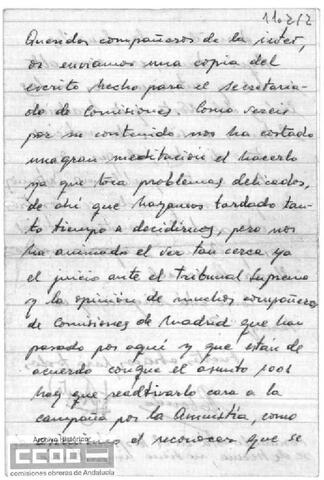 11.2/2
Queridos compañeros de la inter,
os enviamos una copia del
escrito hecho para el secretaria-
do de Comisiones. Como sereis
por su contenido nos ha costado
una gran meditación el hacerlo
ya que toca problemas delicados,
de ahí que hayamos tardado tan-
to tiempo a decidirnos, pero nos
ha animado el ver tan cerca ya
el juicio ante el tribunal Supremo
y la opinión de muchos compañeros
de Comisiones de Madrid que han
pasado por aquí y que están de
acuerdo conque el asunto 1001
hay que reactivarlo cara a la
campaña por la Amnistía, como
el reconocer que se
Archivo Histórico
CCOO
comisiones obreras de Andalucía